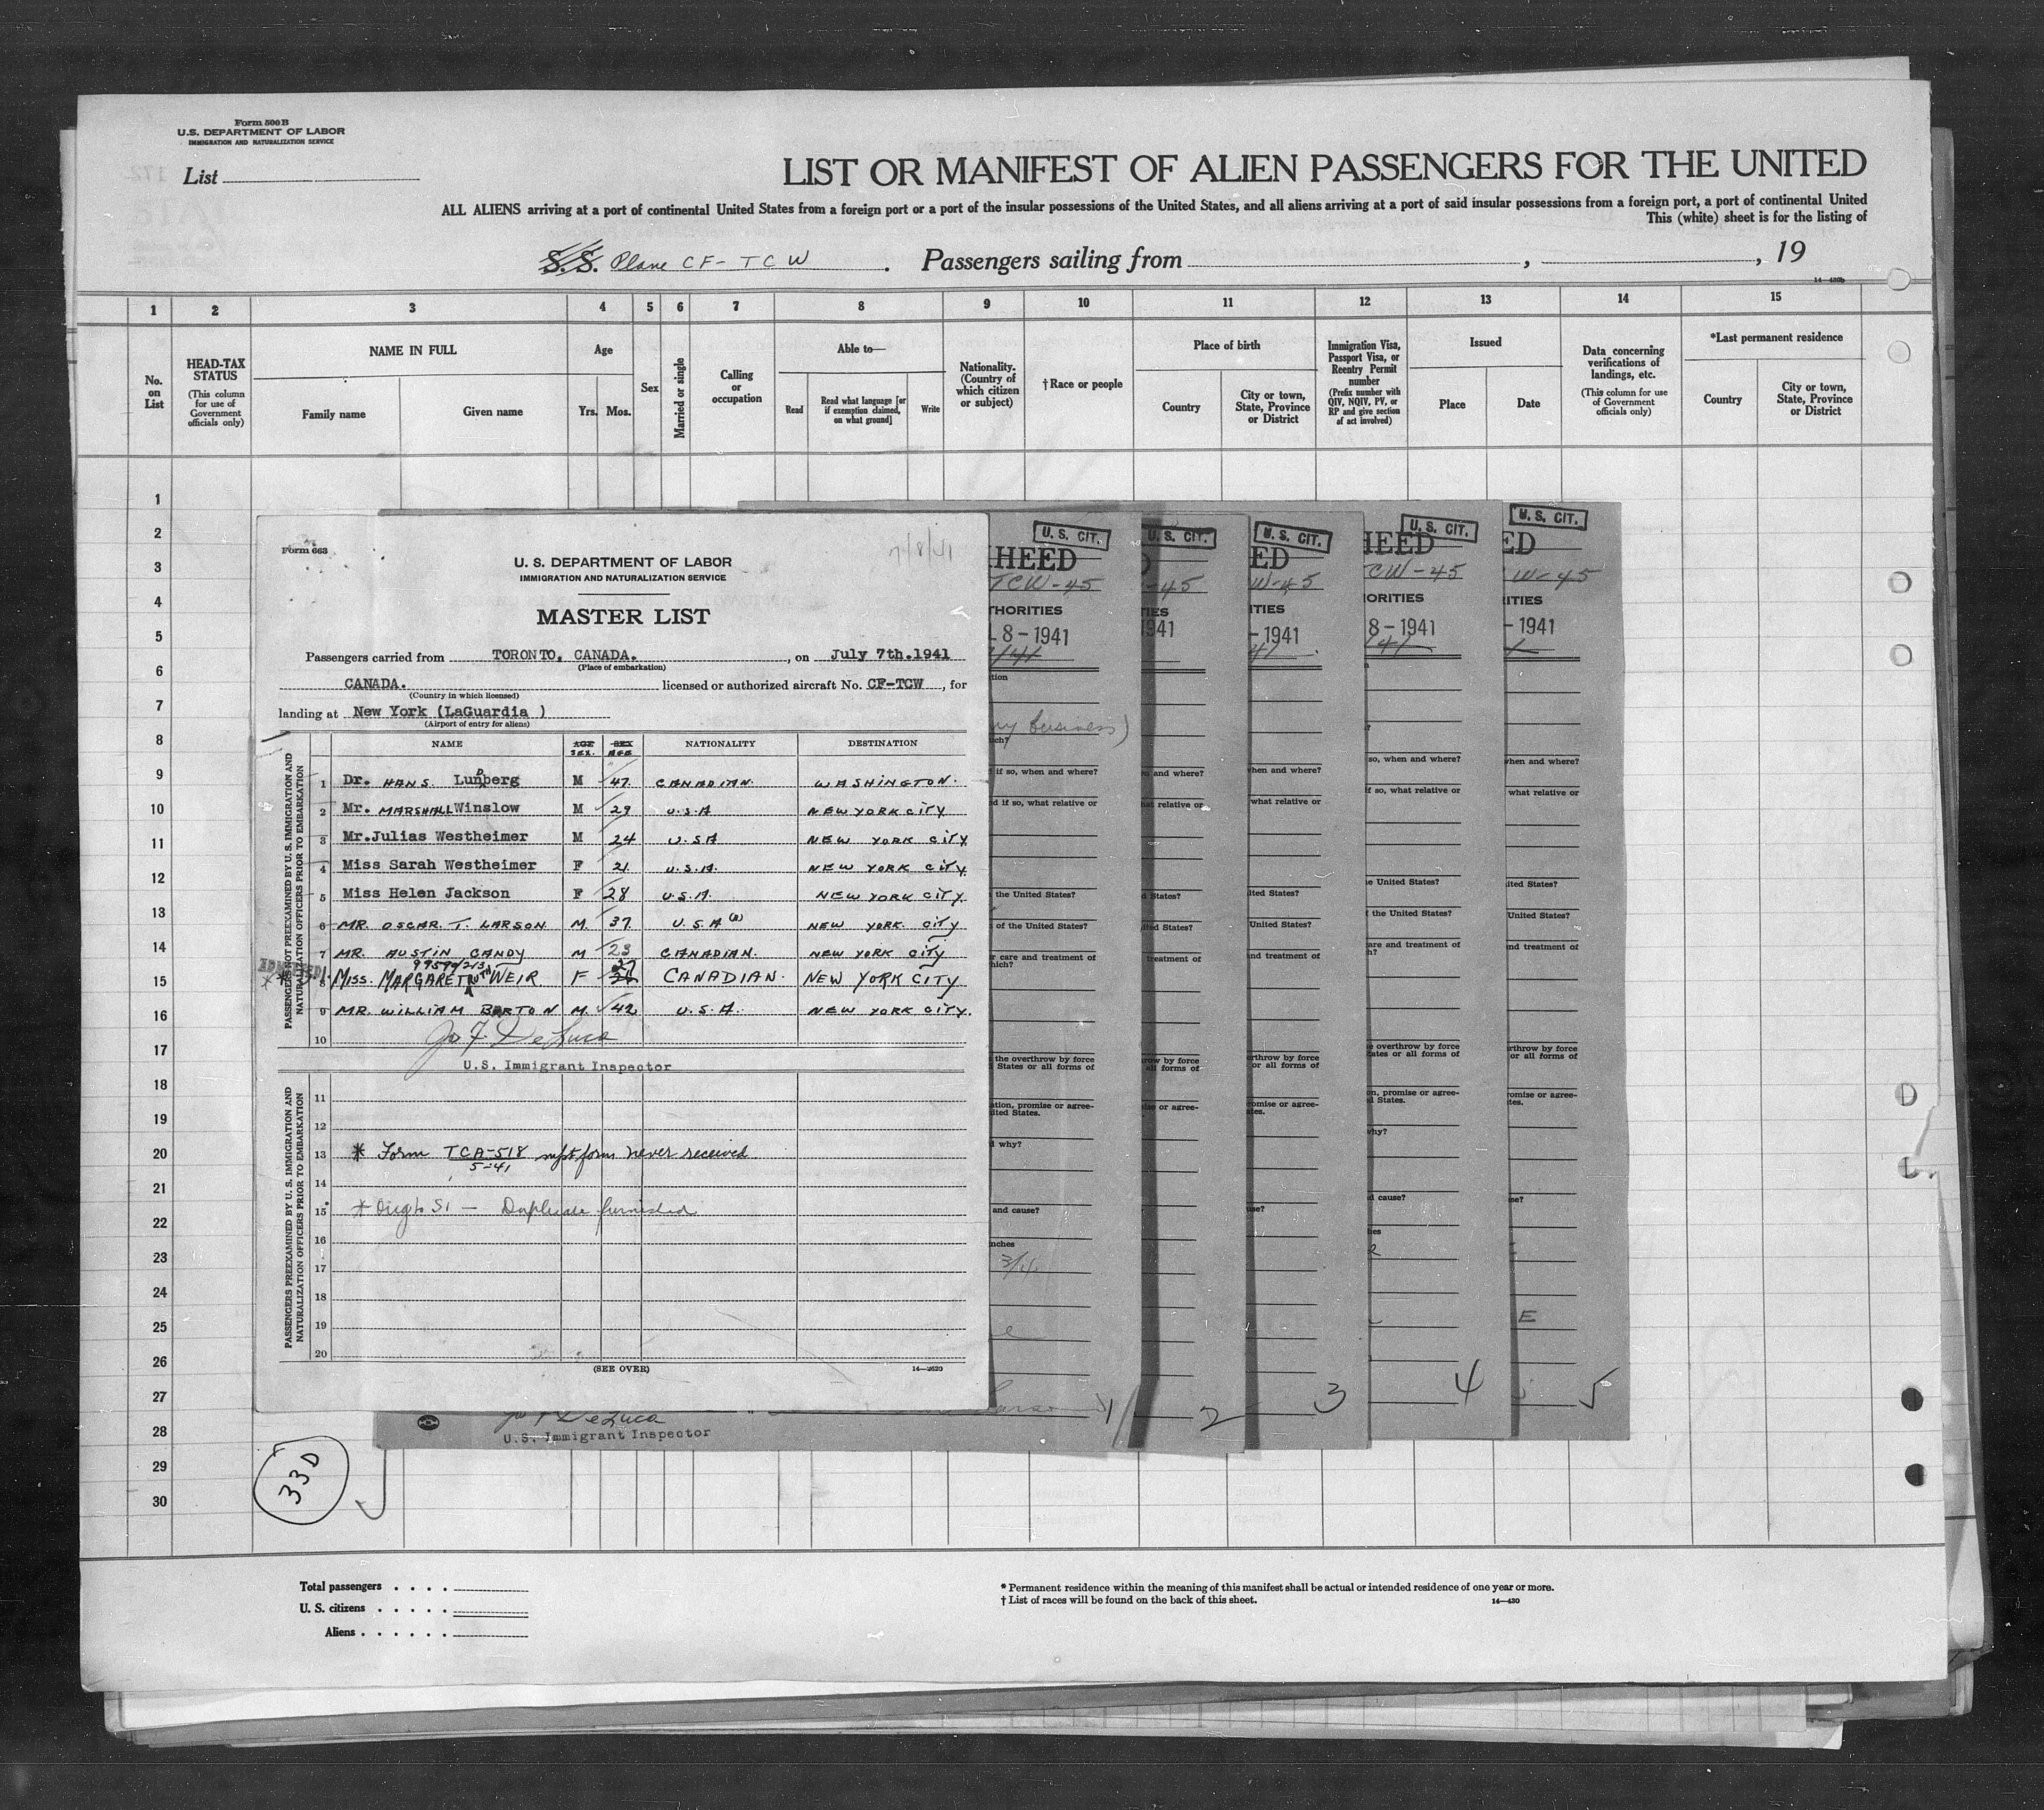 Form 500 B
U.S. DEPARTMENT OF LABOR
IMMIGRATION AND NATURALIZATION SERVICE
List
LIST OR MANIFEST OF ALIEN PASSENGERS FOR THE UNITED
ALL ALIENS arriving at a port of continental United States from a foreign port or a port of the insular possessions of the United States, and all aliens arriving at a port of said insular possessions from a foreign port, a port of continental United
This (white) sheet is for the listing of
S.S. Plane CF-TCW . Passengers sailing from , , 19
14-430b
1 2 3 4 5 6 7 8 9 10 11 12 13 14 15
No. on List
HEAD-TAX STATUS
(This column for use of Government officials only)
NAME IN FULL
Family name
Given name
Age
Yrs. Mos.
Sex
Married or single
Calling or occupation
Able to—
Read
Read what language [or if exemption claimed, on what ground]
Write
Nationality. (Country of which citizen or subject)
†Race or people
Place of birth
Country
City or town, State, Province or District
Immigration Visa, Passport Visa, or Reentry Permit number
(Prefix number with QIV, NQIV, PV, or RP and give section of act involved)
Issued
Place
Date
Data concerning verifications of landings, etc.
(This column for use of Government officials only)
*Last permanent residence
Country
City or town, State, Province or District
1
2
3
4
5
6
7
8
9
10
11
12
13
14
15
16
17
18
19
20
21
22
23
24
25
26
27
28
29
30
Form 663
7/8/41
U. S. DEPARTMENT OF LABOR
IMMIGRATION AND NATURALIZATION SERVICE
MASTER LIST
Passengers carried from TORONTO, CANADA. , on July 7th.1941
(Place of embarkation)
CANADA. licensed or authorized aircraft No. CF-TCW , for
(Country in which licensed)
landing at New York (LaGuardia )
(Airport of entry for aliens)
PASSENGERS NOT PREEXAMINED BY U. S. IMMIGRATION AND NATURALIZATION OFFICERS PRIOR TO EMBARKATION
NAME AGE SEX. SEX AGE NATIONALITY DESTINATION
1 Dr. HANS. LunDberg M 47 CANADIAN. WASHINGTON.
2 Mr. MARSHALL Winslow M 29 U.S.A NEW YORK CITY
3 Mr.Julias Westheimer M 24 U.S.A NEW YORK CITY.
4 Miss Sarah Westheimer F 21 U.S.A. NEW YORK CITY.
5 Miss Helen Jackson F 28 U.S.A. NEW YORK CITY.
6 MR. OSCAR. T. LARSON M. 37 U.S.A NEW YORK CITY
7 MR. AUSTIN CANDY M 23 CANADIAN. NEW YORK CITY
8 MISS. MARGARET WEIR F 27 CANADIAN. NEW YORK CITY
9 MR. WILLIAM BARTON M. 42 U.S.A. NEW YORK CITY.
10 Jo F. DeLuca
U.S. Immigrant Inspector
PASSENGERS PREEXAMINED BY U. S. IMMIGRATION AND NATURALIZATION OFFICERS PRIOR TO EMBARKATION
11
12
13 * Form TCA-518 form never received
5-41
14
15 * Duplicate furnished
16
17
18
19
20
(SEE OVER)
14-2620
U. S. CIT. U. S. CIT. U. S. CIT. U. S. CIT. U. S. CIT.
HEED ED HEED ED
TCW-45 -45 W-45 TCW-45 W-45
THORITIES TIES ITIES ORITIES ITIES
L 8-1941 1941 -1941 8-1941 -1941
my business)
if so, when and where?
d if so, what relative or
the United States?
of the United States?
r care and treatment of
hich?
the overthrow by force
States or all forms of
ation, promise or agree-
ited States.
d why?
and cause?
nches
3/4
Jo F DeLuca
U.S. Immigrant Inspector
1 2 3 4 5
33D
Total passengers . . . .
U. S. citizens . . . . .
Aliens . . . . . .
* Permanent residence within the meaning of this manifest shall be actual or intended residence of one year or more.
† List of races will be found on the back of this sheet.
14-430